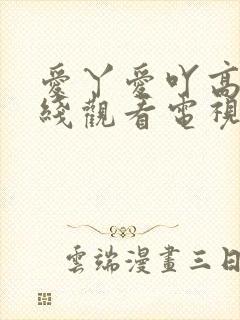 愛丫愛吖高
綫觀看電視
雲端漫畫三日